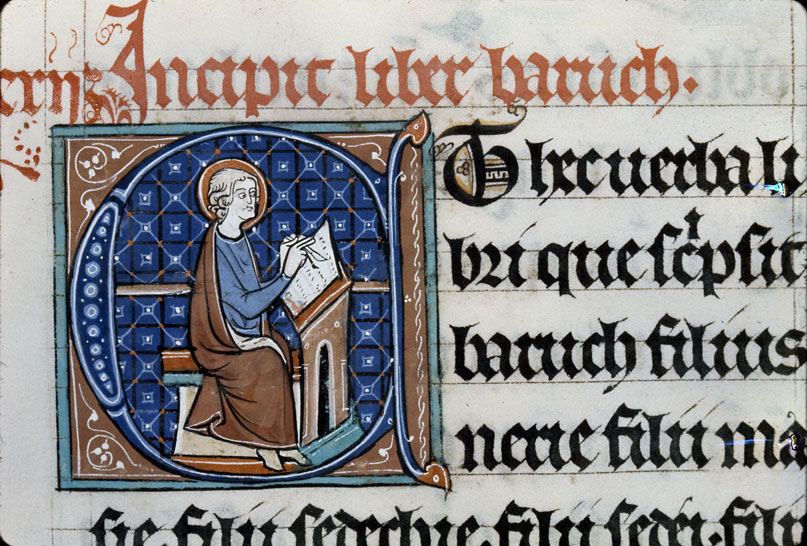 Incipit liber baruch.
ET hec uerba li
bri que scⁱpsit
baruch filius
nerie filii ma
sie. filii sedechie. filii sedei. filii